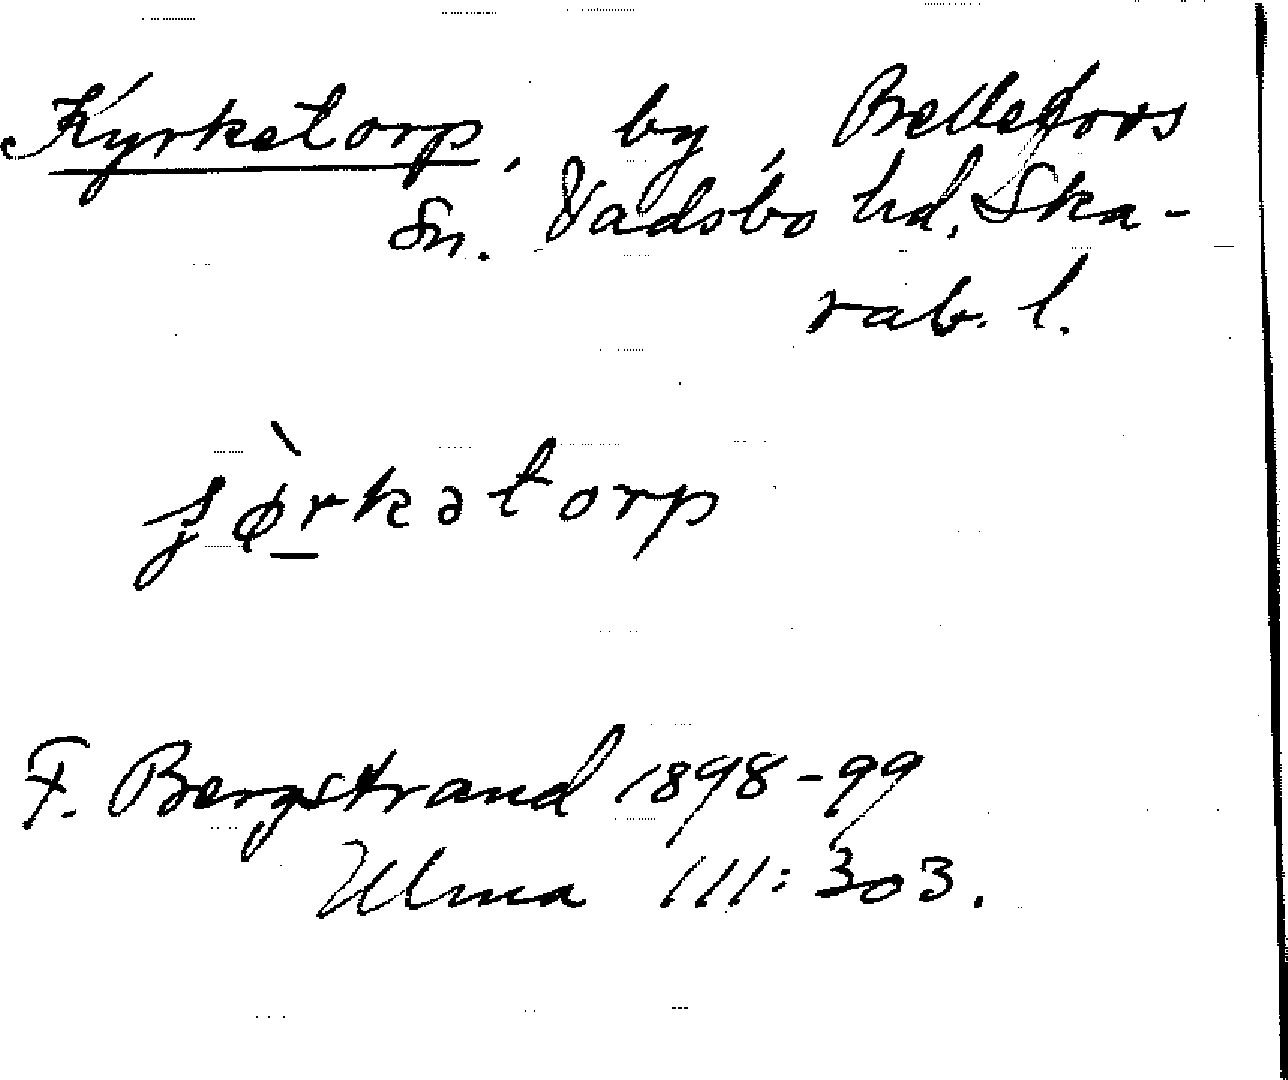 Kyrketorp, by, Bellefors
Sn. Vadsbo hd. Ska-
rab. l.
ʃø̀rkətorp
F. Bergstrand 1898-99
Ulma 111:303.